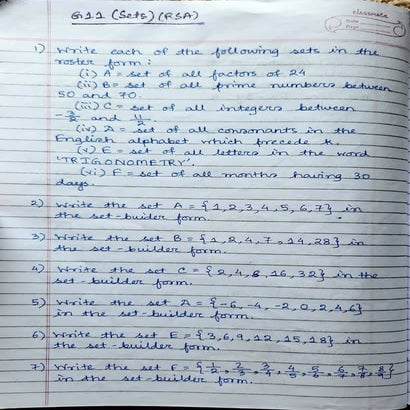 G11 (Sets) (RSA)
classmate
Date
Page
1) Write each of the following sets in the
roster form:
(i) A = set of all factors of 24
(ii) B = set of all prime numbers between
50 and 70.
(iii) C = set of all integers between
and 11/2.
(iv) D = set of all consonants in the
English alphabet which precede k.
(v) E = set of all letters in the word
'TRIGONOMETRY'.
(vi) F = set of all months having 30
days.
2) Write the set A = {1,2,3,4,5,6,7} in
the set-buider form.
3) Write the set B = {1,2,4,7,14,28} in
the set-builder form.
4) Write the set C = {2,4,8,16,32} in the
set-builder form.
5) Write the set D = {-6,-4,-2,0,2,4,6}
in the set-builder form.
6) Write the set E = {3,6,9,12,15,18} in
the set-builder form.
7) Write the set F = {1/2, 2/3, 3/4, 4/5, 5/6, 6/7, 7/8, 8/9}
in the set-builder form.